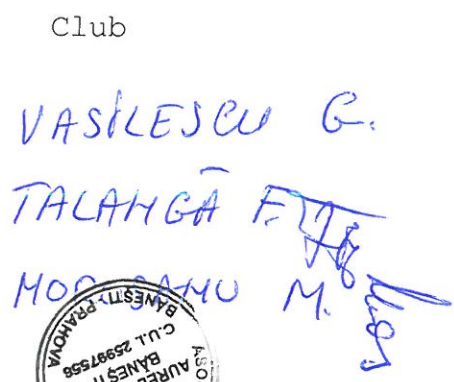 Club
VASILESCU G.
TALANGĂ F.
M.
BĂNEȘTI - PRAHOVA
C.U.I. 25997558
BĂNEȘTI
AUREL
ASO